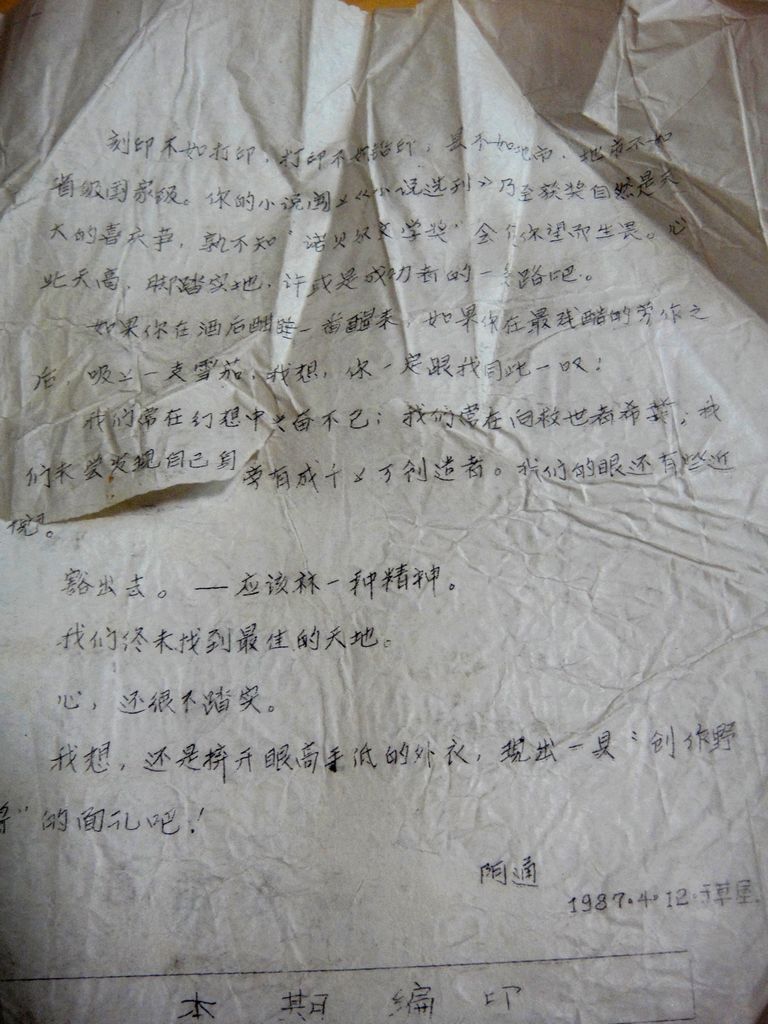 刻印不如打印，打印不如铅印，县不如地市，地市不如
省级国家级。你的小说闯上《小说选刊》乃至获奖自然是天
大的喜庆事，孰不知“诺贝尔文学奖”会令你望而生畏。心
比天高，脚踏实地，许或是成功者的一条路吧。
如果你在酒后酣睡一番醒来，如果你在最残酷的劳作之
后，吸上一支雪茄，我想，你一定跟我同此一叹：
我们常在幻想中兴奋不已；我们常在向救世者希冀；我
们未尝发现自己身旁有成千上万创造者。我们的眼还有些近
视。
豁出去。——应该林一种精神。
我们终未找到最佳的天地。
心，还很不踏实。
我想，还是摒开眼高手低的外衣，现出一具“创作野
兽”的面孔吧！
阿通
1987.4.12.于草屋.
本期编印